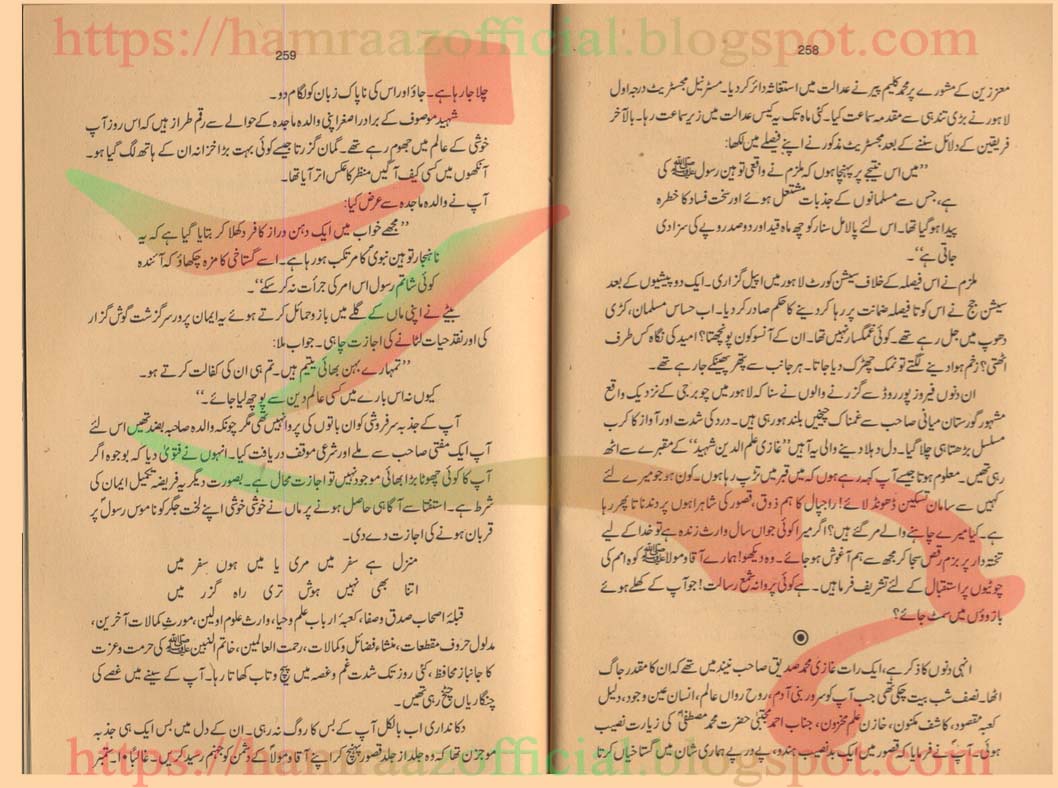 https://hamraazofficial.blogspot.com
258
معززین کے مشورے پر محمد کلیم پیر نے عدالت میں استغاثہ دائر کر دیا۔ مسٹر نیل مجسٹریٹ درجہ اول
لاہور نے بڑی تندہی سے مقدمہ سماعت کیا۔ کئی ماہ تک یہ کیس عدالت میں زیر سماعت رہا۔ بالآخر
فریقین کے دلائل سننے کے بعد مجسٹریٹ مذکور نے اپنے فیصلے میں لکھا:
”میں اس نتیجے پر پہنچا ہوں کہ ملزم نے واقعی توہین رسول ﷺ کی
ہے، جس سے مسلمانوں کے جذبات مشتعل ہوئے اور سخت فساد کا خطرہ
پیدا ہو گیا تھا۔ اس لئے پالامل سنار کو چھ ماہ قید اور دو صد روپے کی سزا دی
جاتی ہے“۔
ملزم نے اس فیصلہ کے خلاف سیشن کورٹ لاہور میں اپیل گزاری۔ ایک دو پیشیوں کے بعد
سیشن جج نے اس کو تا فیصلہ ضمانت پر رہا کر دینے کا حکم صادر کر دیا۔ اب حساس مسلمان، کڑی
دھوپ میں جل رہے تھے۔ کوئی غمگسار نہیں تھا۔ ان کے آنسو کون پونچھتا؟ امید کی نگاہ کس طرف
اٹھتی؟ زخم ہوا دینے لگتے تو نمک چھڑک دیا جاتا۔ ہر جانب سے پتھر پھینکے جا رہے تھے۔
ان دنوں فیروز پور روڈ سے گزرنے والوں نے سنا کہ لاہور میں چوبرجی کے نزدیک واقع
مشہور گورستان میانی صاحب سے غمناک چیخیں بلند ہو رہی ہیں۔ درد کی شدت اور آواز کا کرب
مسلسل بڑھتا ہی چلا گیا۔ دل دہلا دینے والی یہ آہیں ”غازی علم الدین شہید“ کے مقبرے سے اٹھ
رہی تھیں۔ معلوم ہوتا جیسے آپ کہہ رہے ہوں کہ میں قبر میں تڑپ رہا ہوں۔ کون ہو جو میرے لئے
کہیں سے سامان تسکین ڈھونڈ لائے! راجپال کا ہم ذوق، قصور کی شاہراہوں پر دندناتا پھر رہا
ہے۔ کیا میرے چاہنے والے مر گئے ہیں؟ اگر میرا کوئی جواں سال وارث زندہ ہے تو خدا کے لیے
تختہ دار پر بزم رقص سجا کر مجھ سے ہم آغوش ہو جائے۔ وہ دیکھو! ہمارے آقا و مولا ﷺ کوہ امم کی
چوٹیوں پر استقبال کے لئے تشریف فرما ہیں۔ ہے کوئی پروانہ شمع رسالت! جو آپ کے کھلے ہوئے
بازوؤں میں سمٹ جائے؟
انہی دنوں کا ذکر ہے، ایک رات غازی محمد صدیق صاحب نیند میں تھے کہ ان کا مقدر جاگ
اٹھا۔ نصف شب بیت چکی تھی جب آپ کو سرور بنی آدم، روح رواں عالم، انسان عین وجود، دلیل
کعبہ مقصود، کاشف مکنون، خازن علم مخزون، جناب احمد مجتبیٰ حضرت محمد مصطفیٰ کی زیارت نصیب
ہوئی۔ آپ نے فرمایا کہ قصور میں ایک بدنصیب ہندو، پے در پے ہماری شان میں گستاخیاں کرتا
259
چلا جا رہا ہے۔ جاؤ اور اس کی ناپاک زبان کو لگام دو۔
شہید موصوف کے برادر اصغر اپنی والدہ ماجدہ کے حوالے سے رقم طراز ہیں کہ اس روز آپ
خوشی کے عالم میں جھوم رہے تھے۔ گمان گزرتا جیسے کوئی بہت بڑا خزانہ ان کے ہاتھ لگ گیا ہو۔
آنکھوں میں کسی کیف آگیں منظر کا عکس اتر آیا تھا۔
آپ نے والدہ ماجدہ سے عرض کیا:
”مجھے خواب میں ایک دہن دراز کافر دکھلا کر بتایا گیا ہے کہ یہ
ناہنجار توہین نبوی کا مرتکب ہو رہا ہے۔ اسے گستاخی کا مزہ چکھاؤ کہ آئندہ
کوئی شاتم رسول اس امر کی جرأت نہ کر سکے“۔
بیٹے نے اپنی ماں کے گلے میں بازو حمائل کرتے ہوئے یہ ایمان پرور سرگزشت گوش گزار
کی اور نقد حیات لٹانے کی اجازت چاہی۔ جواب ملا:
”تمہارے بہن بھائی یتیم ہیں۔ تم ہی ان کی کفالت کرتے ہو۔
کیوں نہ اس بارے میں کسی عالم دین سے پوچھ لیا جائے۔“
آپ کے جذبہ سرفروشی کو ان باتوں کی پروا نہیں تھی مگر چونکہ والدہ صاحبہ بضد تھیں اس لئے
آپ ایک مفتی صاحب سے ملے اور شرعی موقف دریافت کیا۔ انہوں نے فتویٰ دیا کہ بوجوہ اگر
آپ کا کوئی چھوٹا بڑا بھائی موجود نہیں تو اجازت محال ہے۔ بصورت دیگر یہ فریضہ تکمیل ایمان کی
شرط ہے۔ استفتا سے آگاہی حاصل ہونے پر ماں نے خوشی خوشی اپنے لخت جگر کو ناموس رسول پر
قربان ہونے کی اجازت دے دی۔
منزل ہے سفر میں مری یا میں ہوں سفر میں
اتنا بھی نہیں ہوش تری راہ گزر میں
قبلۂ اصحاب صدق و صفا، کعبۂ ارباب علم و حیا، وارث علوم اولین، مورث کمالات آخرین،
مدلول حروف مقطعات، منشاء فضائل و کمالات، رحمت العالمین، خاتم النبین ﷺ کی حرمت و عزت
کا جانباز محافظ، کئی روز تک شدت غم و غصہ میں پیچ و تاب کھاتا رہا۔ آپ کے سینے میں غصے کی
چنگاریاں چیخ رہی تھیں۔
دکانداری اب بالکل آپ کے بس کا روگ نہ رہی۔ ان کے دل میں بس ایک ہی جذبہ
موجزن تھا کہ وہ جلد از جلد قصور پہنچ کر اپنے آقا و مولا کے دشمن کو جہنم رسید کریں۔ غالباً ۱۰ ستمبر
https://hamraazofficial.blogspot.com